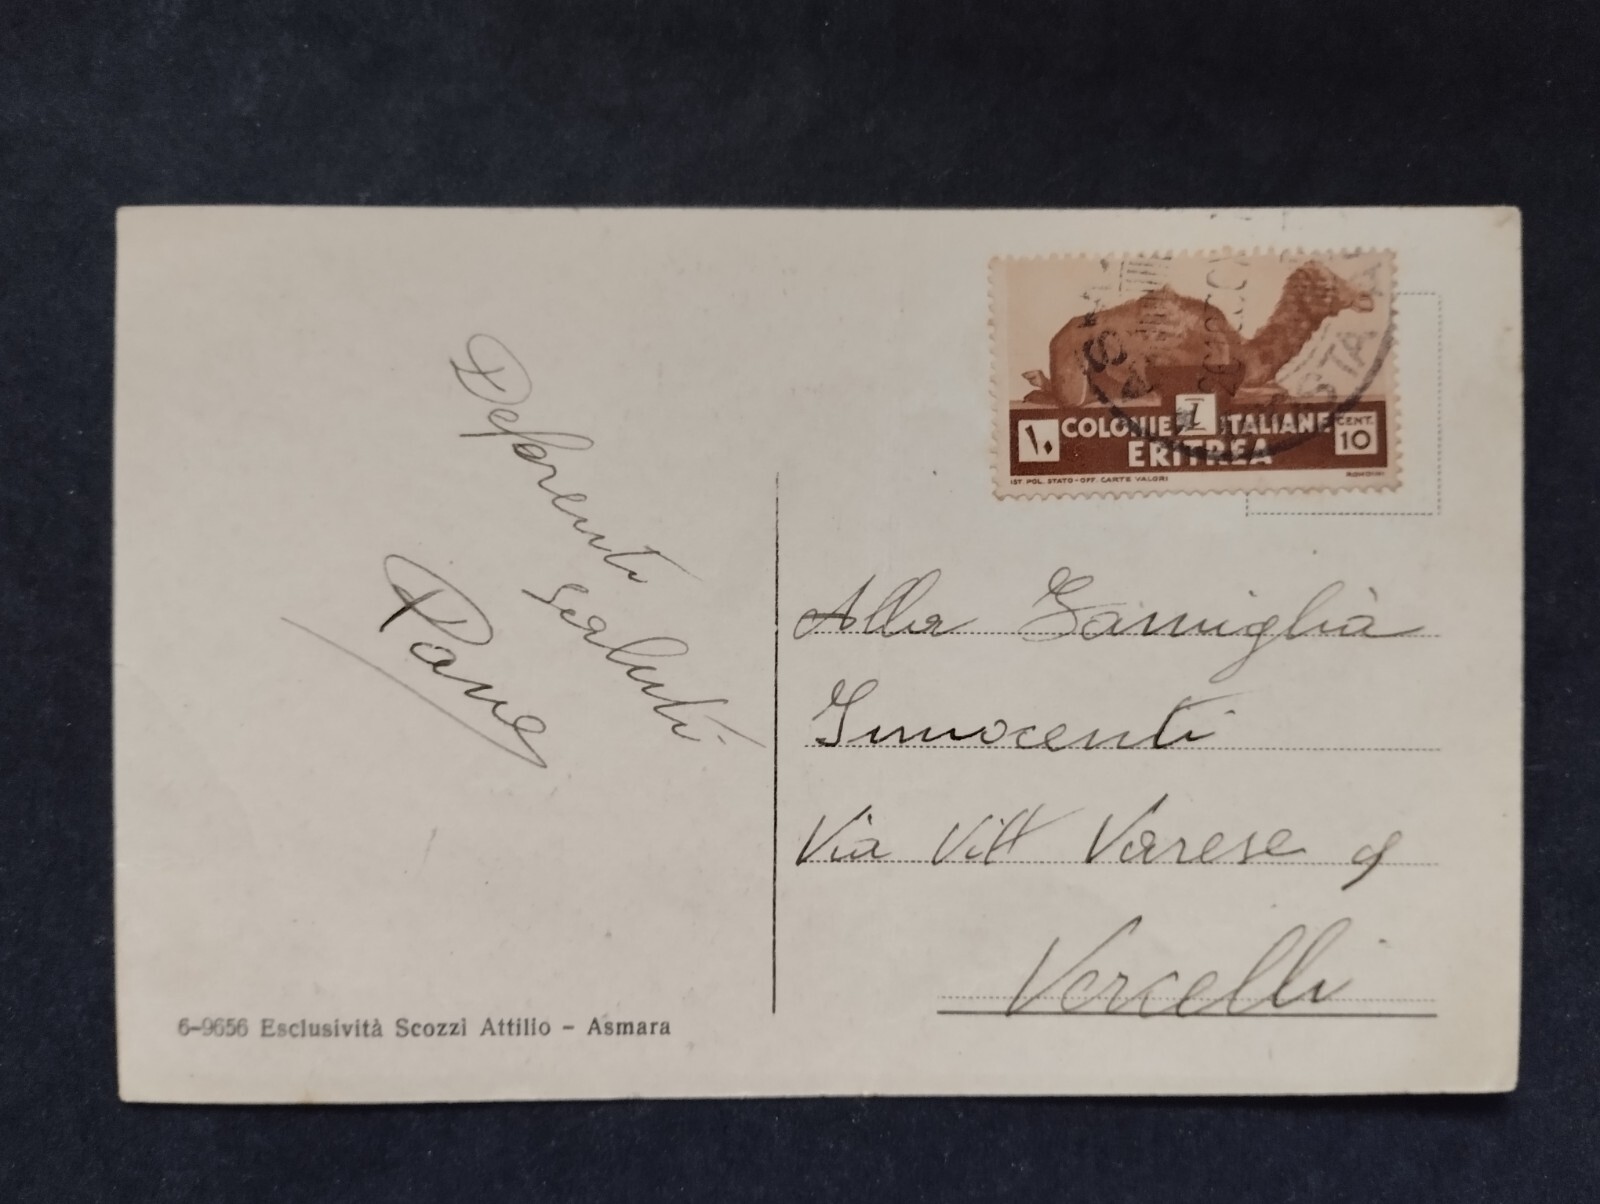 Deferenti
saluti
Pane
6-9656 Esclusività Scozzi Attilio - Asmara
POSTA
١٠ COLONIE ITALIANE CENT. 10
ERITREA
IST. POL. STATO - OFF. CARTE VALORI RONDINI
Alla Famiglia
Innocenti
Via Vitt Varese 9
Vercelli